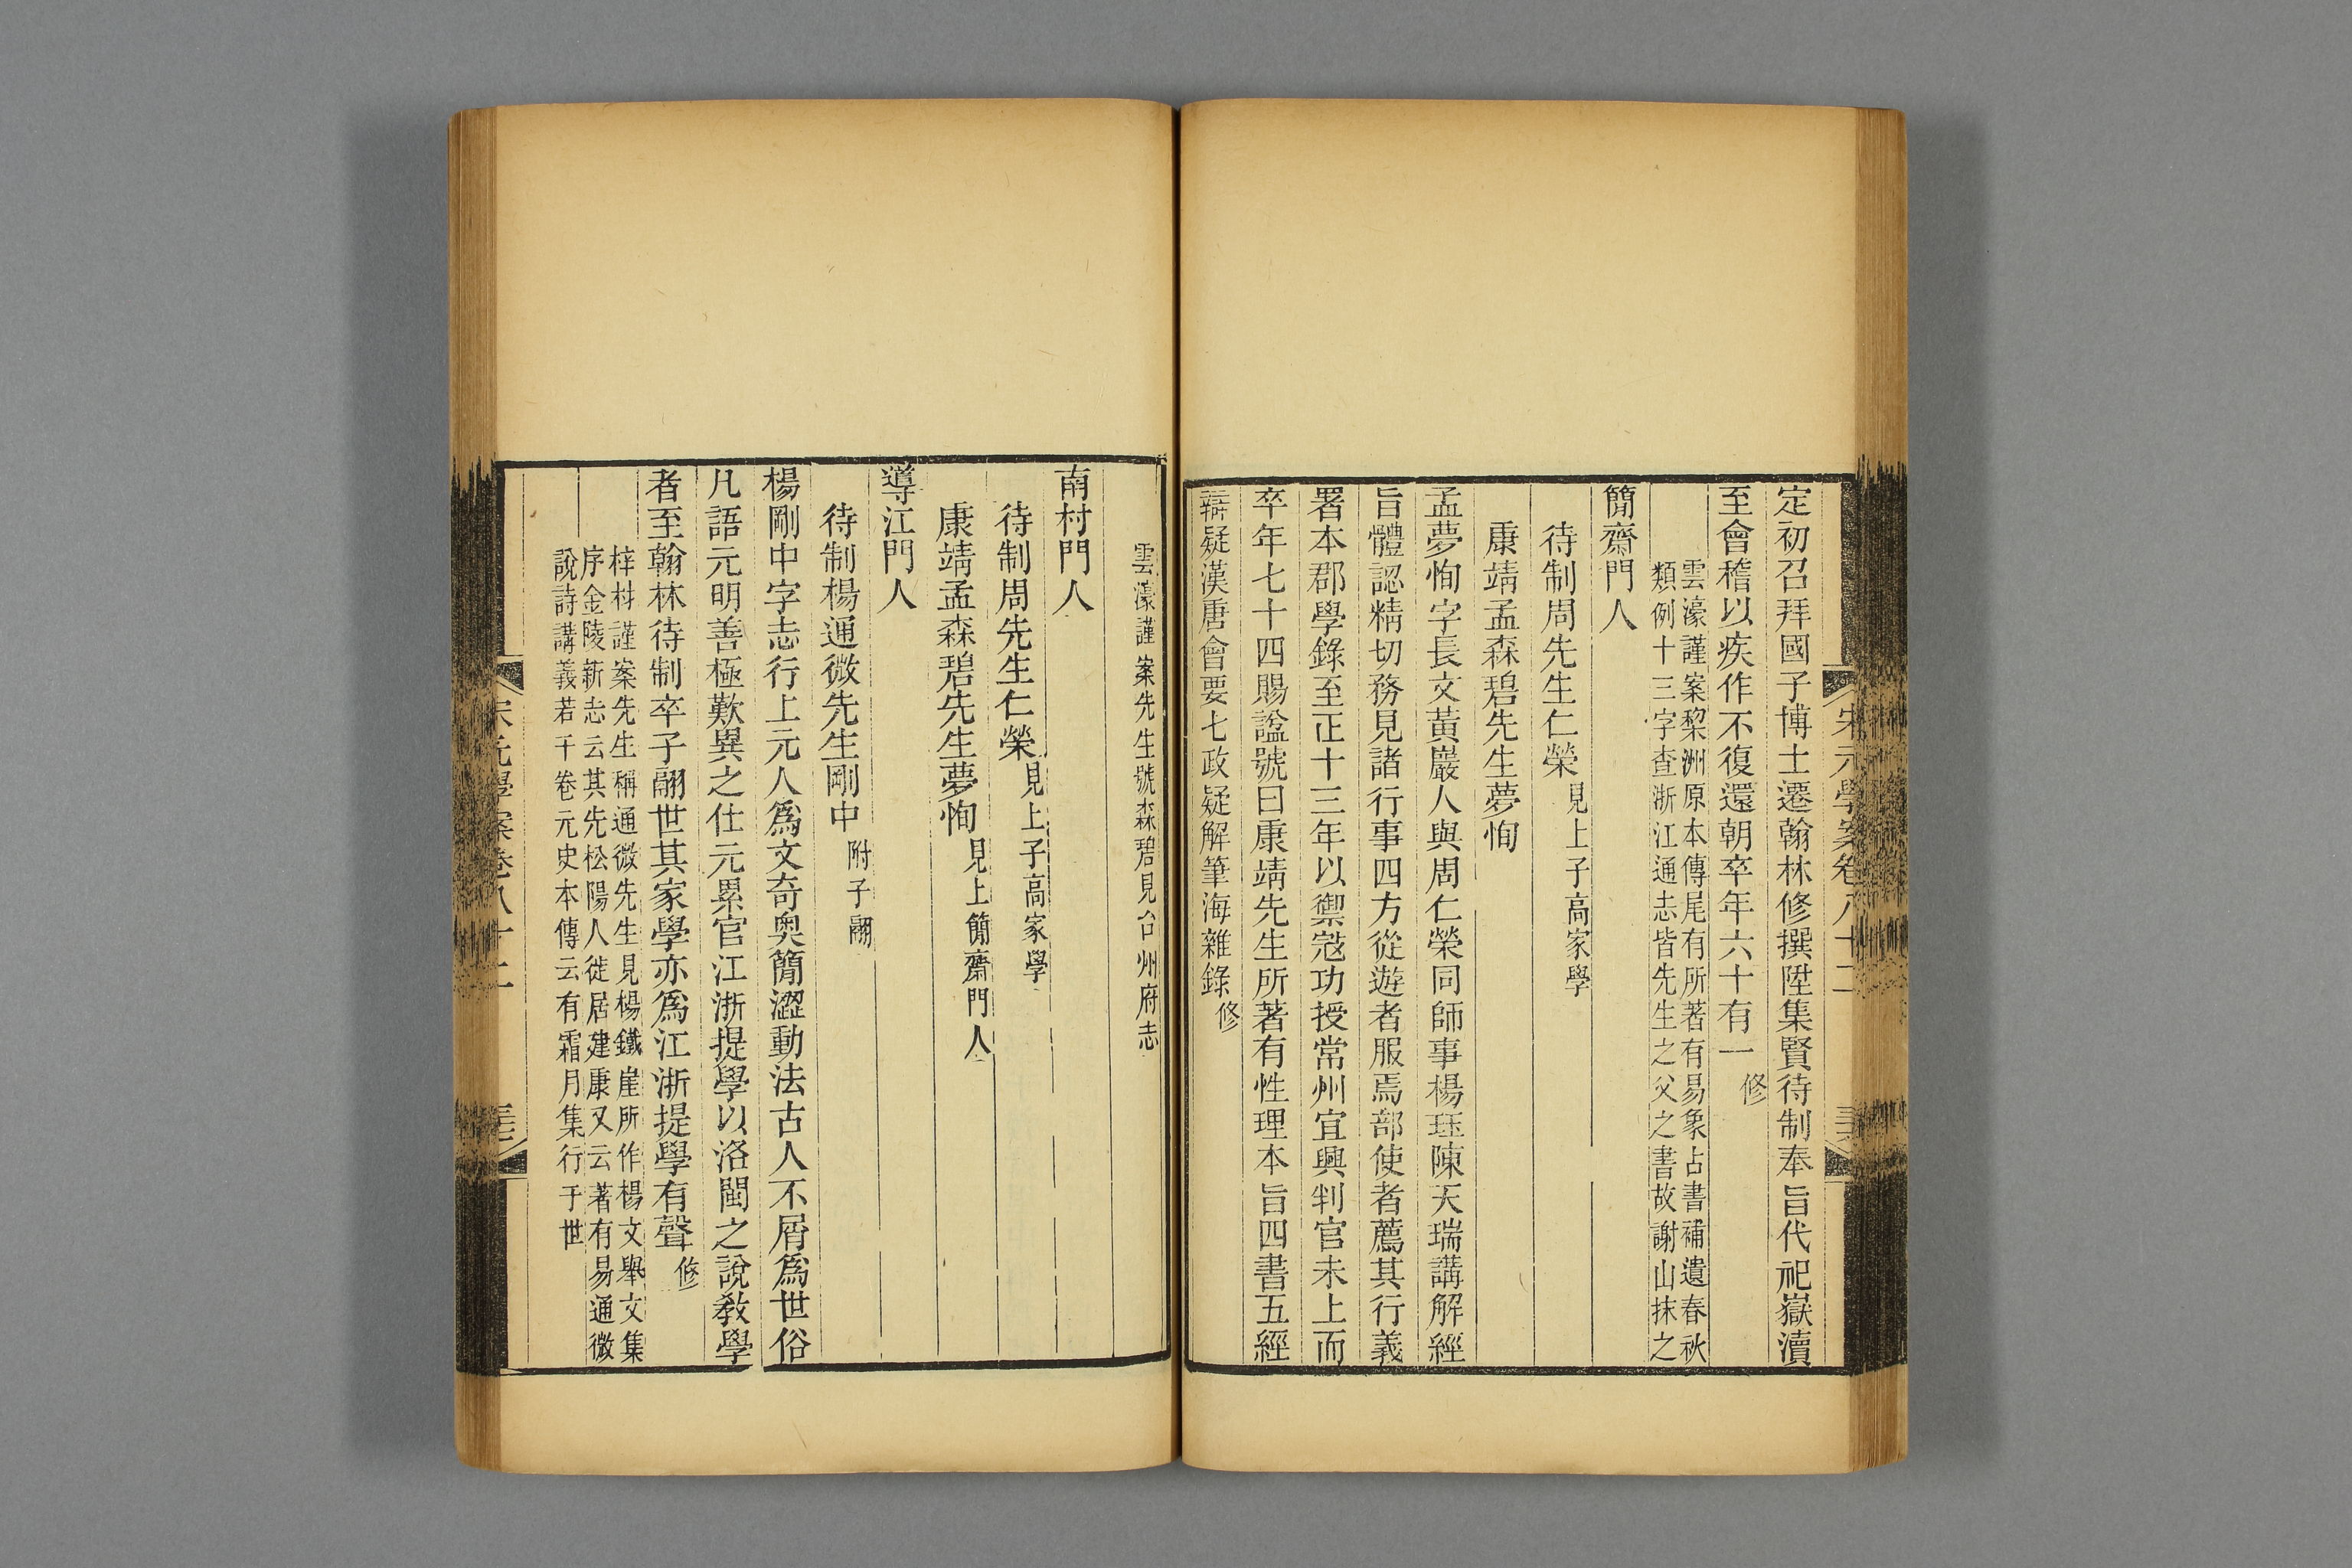 宋元學案卷八十二
定初召拜國子博士遷翰林修撰陞集賢待制奉旨代祀嶽瀆
至會稽以疾作不復還朝卒年六十有一修
雲濠謹案棃洲原本傳尾有所著有易象占書補遺春秋
類例十三字查浙江通志皆先生之父之書故謝山抹之
簡齋門人
待制周先生仁榮見上子高家學
康靖孟森碧先生夢恂
孟夢恂字長文黃巖人與周仁榮同師事楊珏陳天瑞講解經
旨體認精切務見諸行事四方從遊者服焉部使者薦其行義
署本郡學錄至正十三年以禦寇功授常州宜興判官未上而
卒年七十四賜諡號曰康靖先生所著有性理本旨四書五經
辯疑漢唐會要七政疑解筆海雜錄修
雲濠謹案先生號森碧見台州府志
南村門人
待制周先生仁榮見上子高家學
康靖孟森碧先生夢恂見上簡齋門人
導江門人
待制楊通微先生剛中附子翮
楊剛中字志行上元人爲文奇奧簡澀動法古人不屑爲世俗
凡語元明善極歎異之仕元累官江浙提學以洛閩之說敎學
者至翰林待制卒子翮世其家學亦爲江浙提學有聲修
梓材謹案先生稱通微先生見楊鐵崖所作楊文舉文集
序金陵新志云其先松陽人徙居建康又云著有易通微
說詩講義若干卷元史本傳云有霜月集行于世
宋元學案卷八十二